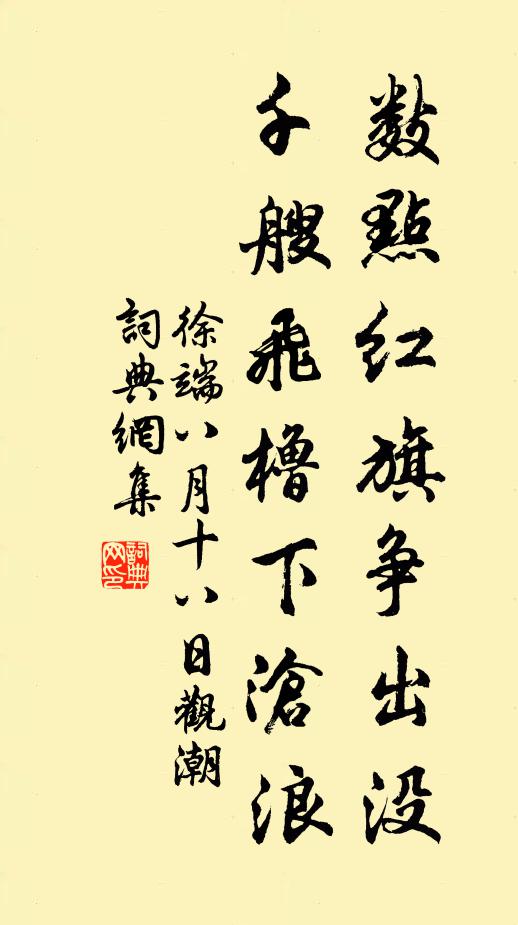 數點紅旗爭出没
千艘飛櫓下滄浪
徐端八月十八日觀潮
詞典網集
詞典網印